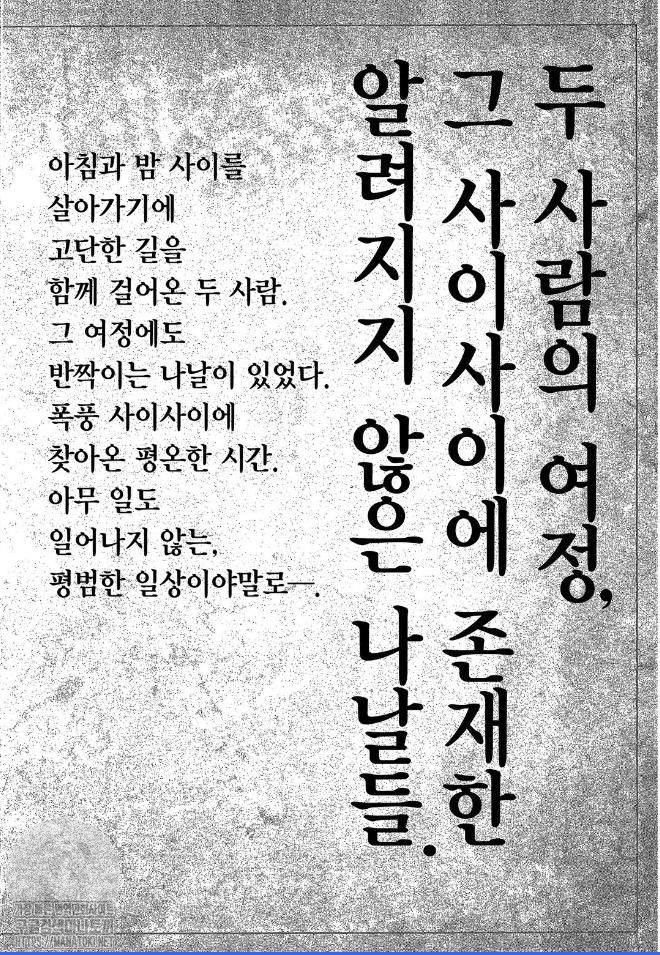 두 사람의 여정,
그 사이사이에 존재한
알려지지 않은 나날들.
아침과 밤 사이를
살아가기에
고단한 길을
함께 걸어온 두 사람.
그 여정에도
반짝이는 나날이 있었다.
폭풍 사이사이에
찾아온 평온한 시간.
아무 일도
일어나지 않는,
평범한 일상이야말로―.
HTTPS://MANATOKI.NET